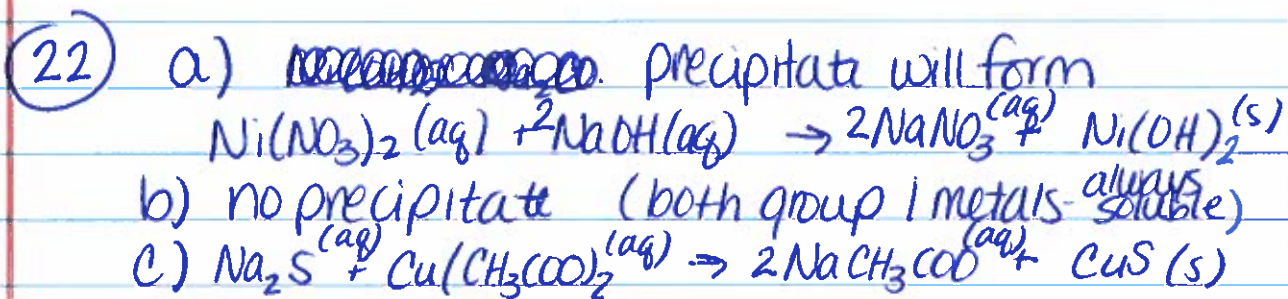 22 a) precipitate will form
Ni(NO₃)₂ (aq) + 2NaOH(aq) → 2NaNO₃(aq) + Ni(OH)₂(s)
b) no precipitate (both group 1 metals - always soluble)
c) Na₂S(aq) + Cu(CH₃COO)₂(aq) → 2NaCH₃COO(aq) + CuS (s)